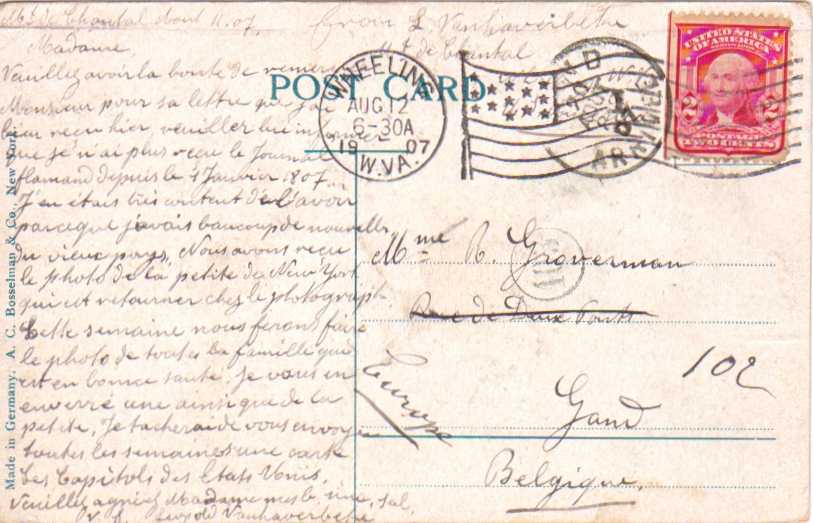 Mt de Chantal Aout 11. 07. From L. Vanhaverbeke
Mt de Chantal
Madame,
Veuillez avoir la bonté de remercier
Monsieur pour sa lettre que j'ai
bien reçu hier, veuiller lui
que je n'ai plus reçu le Journal
flamand depuis le 1 Janvier 1807.
J'en étais très content de l'avoir
parceque j'avais beaucoup de nouvelles
du vieux pays. Nous avons reçu
le photo de la petite de New York
qui est retourner chez le photograph
Cette semaine nous ferons faire
le photo de toutes la famille qui
est en bonne santé. Je vous en
enverré une ainsi que de la
petite. Je tacherai de vous envoyer
toutes les semaines une carte
des Capitols des Etats Unis.
Veuillez agréez Madame mes
Leopold Vanhaverbeke
POST CARD
WHEELING
AUG 12
6-30A
1907
W.VA.
UNITED STATES
OF AMERICA
2 2
POSTAGE
TWO CENTS
Mme R. Groverman
Rue de Deux Ponts
102
Europe
Gand
Belgique.
Made in Germany. A. C. Bosselman & Co. New York